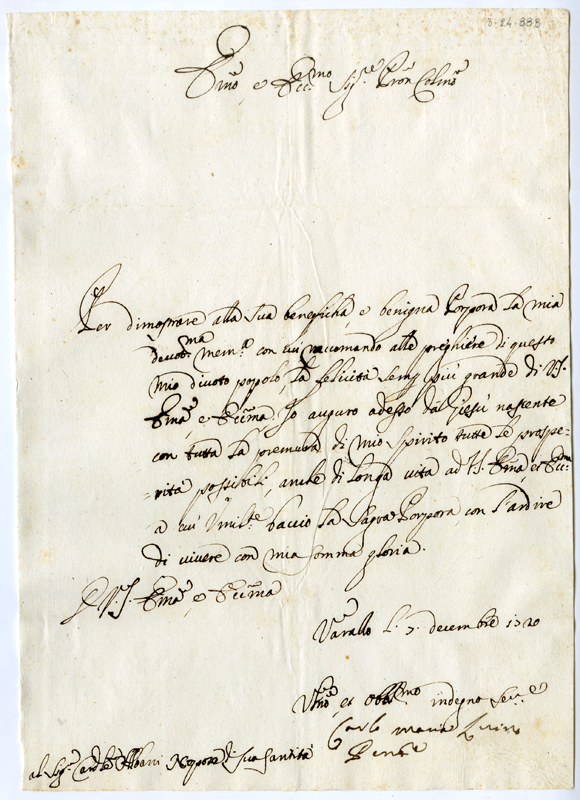 3-24-888
Em̃o, e Ecc.mo Sig.re Pron Colmo
Per dimostrare alla sua benefica, e benigna Porpora la mia
devot.ma mem.a con cui racomando alle preghiere di questo
mio divoto popolo, la felicità semp più grande di V.S.
Em̃a, e Eccma. Io auguro adesso da Giesù nascente
con tutta la premura di mio spirito tutte le prospe-
-rità possibili, anche di longa vita ad V.S. Em̃a, et Ecc.ma
a cui Umil.te baccio la Sagra Porpora con l'ardire
di vivere con mia somma gloria.
D V.S. Em̃a, e Eccma
Varallo L. 7. decembre 1720
Um̃o, et obb.mo indegno Ser.e
Carlo Maria
al Sig.r Card.le Albani Nepote di sua santità